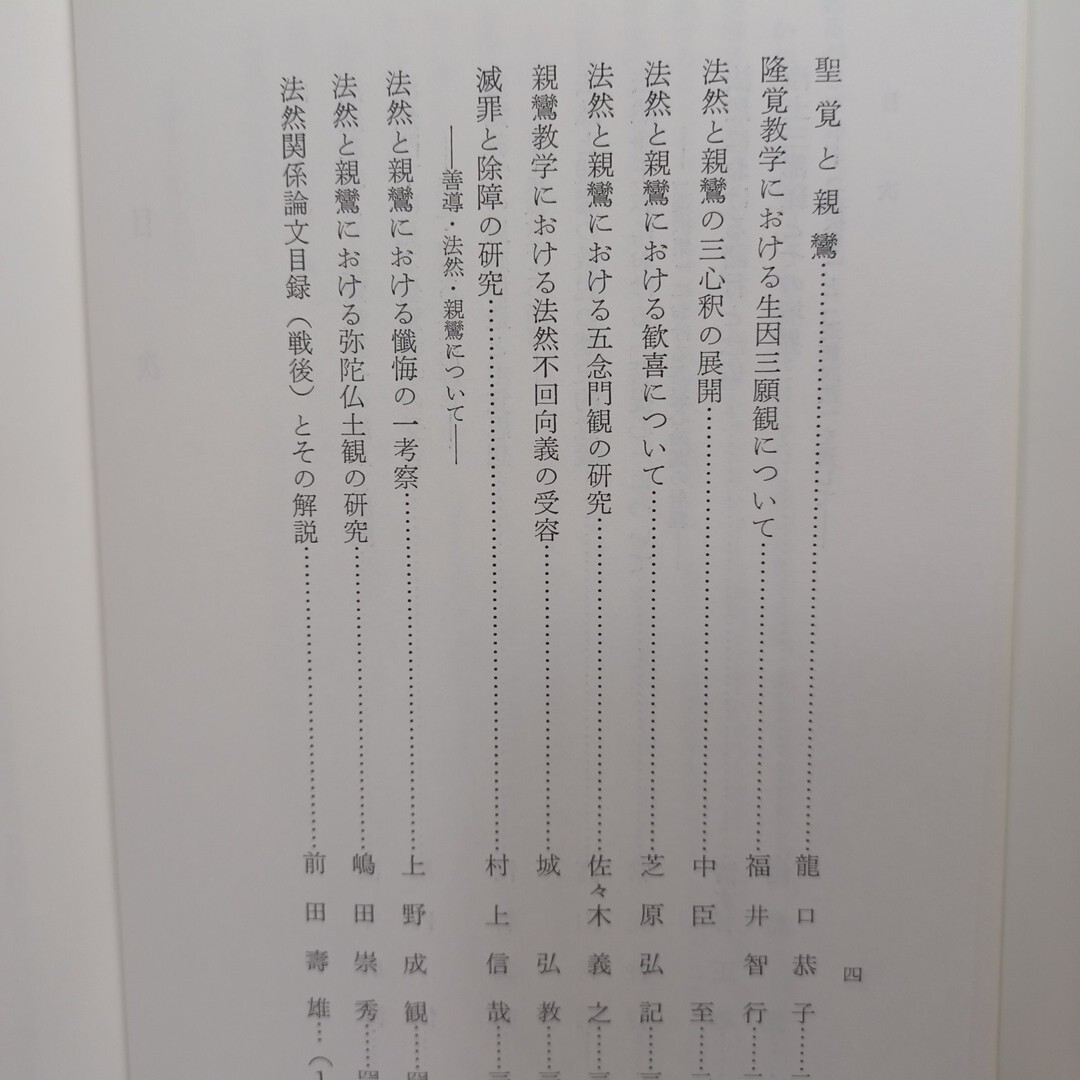 聖覚と親鸞……龍口恭子……
隆覚教学における生因三願観について……福井智行……
法然と親鸞の三心釈の展開……中臣至……
法然と親鸞における歓喜について……芝原弘記……
法然と親鸞における五念門観の研究……佐々木義之……
親鸞教学における法然不回向義の受容……城弘教……
滅罪と除障の研究……村上信哉……
――善導・法然・親鸞について――
法然と親鸞における懺悔の一考察……上野成観……
法然と親鸞における弥陀仏土観の研究……嶋田崇秀……
法然関係論文目録（戦後）とその解説……前田壽雄…（1
四